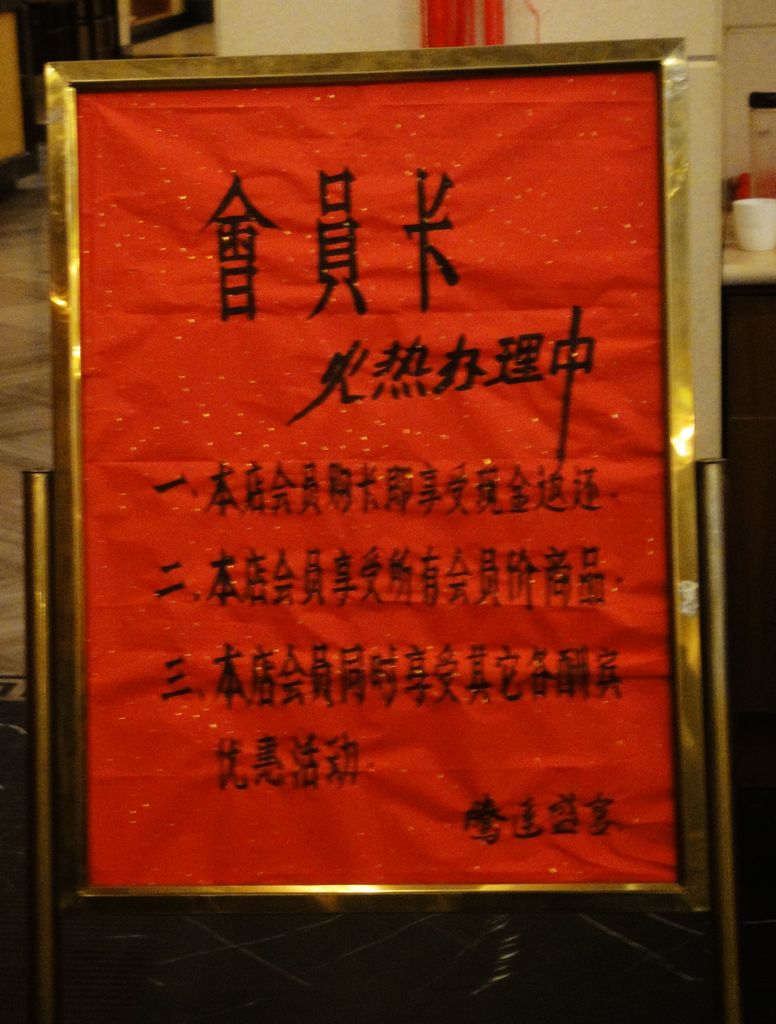 會員卡
火热办理中
一、本店会员购卡即享受现金返还.
二、本店会员享受所有会员价商品.
三、本店会员同时享受其它各酬宾
优惠活动.
腾达盛宴